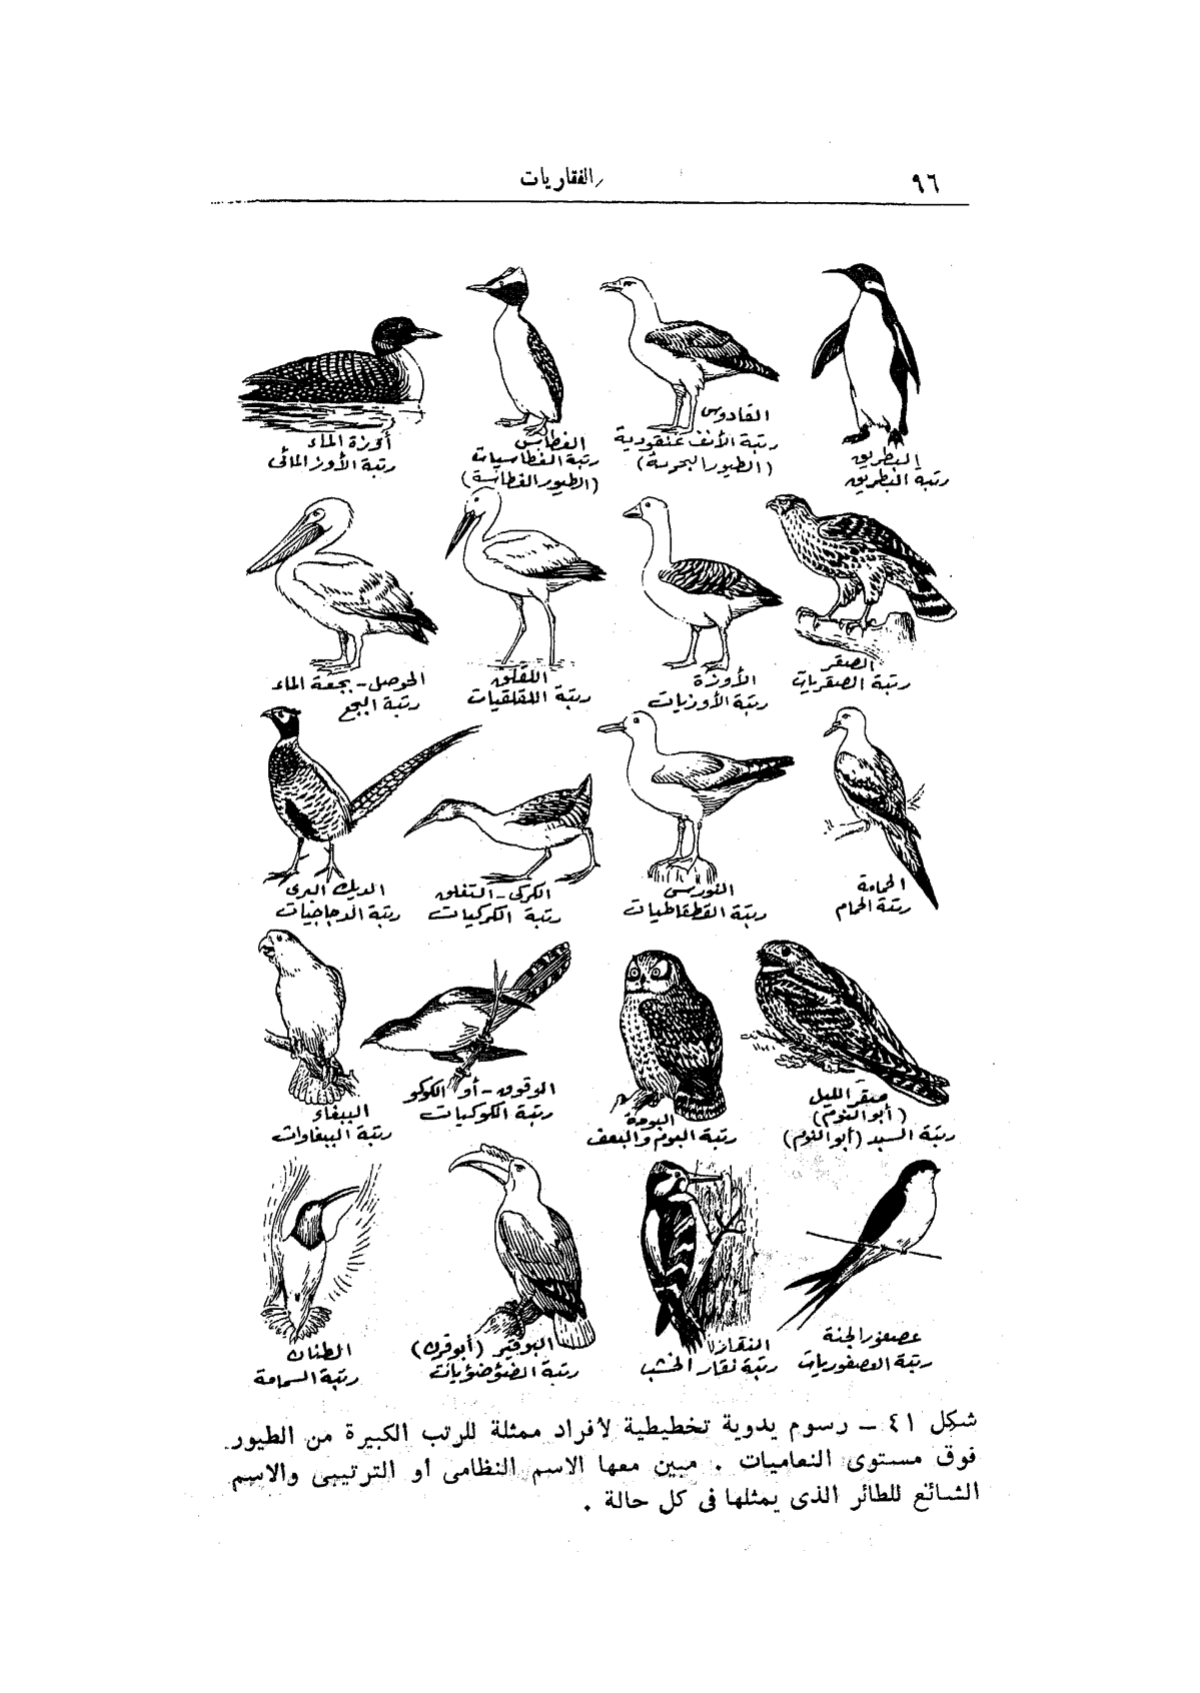 ٩٦
الفقاريات
البطريق
رتبة البطريق
القادوس
رتبة الأنف عنقودية
(الطيور البحرية)
الغطاس
رتبة الغطاسيات
(الطيور الغطاسة)
أوزة الماء
رتبة الأوز المائى
الصقر
رتبة الصقريات
الأوزة
رتبة الأوزيات
اللقلق
رتبة اللقلقيات
الحوصل - بجعة الماء
رتبة البجع
الحمامة
رتبة الحمام
النورس
رتبة القطقاطيات
الكركى - التفلق
رتبة الكركيات
الديك البرى
رتبة الدجاجيات
صقر الليل
(أبو النوم)
رتبة السبد (أبو النوم)
البومة
رتبة البوم والبعف
الوقوق - أو الكوكو
رتبة الكوكيات
الببغاء
رتبة الببغاوات
عصفور الجنة
رتبة العصفوريات
النقار
رتبة نقار الخشب
البوقير (أبو قرن)
رتبة الضؤضؤيات
الطنان
رتبة السمامة
شكل ٤١ — رسوم يدوية تخطيطية لأفراد ممثلة للرتب الكبيرة من الطيور
فوق مستوى النعاميات . مبين معها الاسم النظامى أو الترتيبى والاسم
الشائع للطائر الذى يمثلها فى كل حالة .